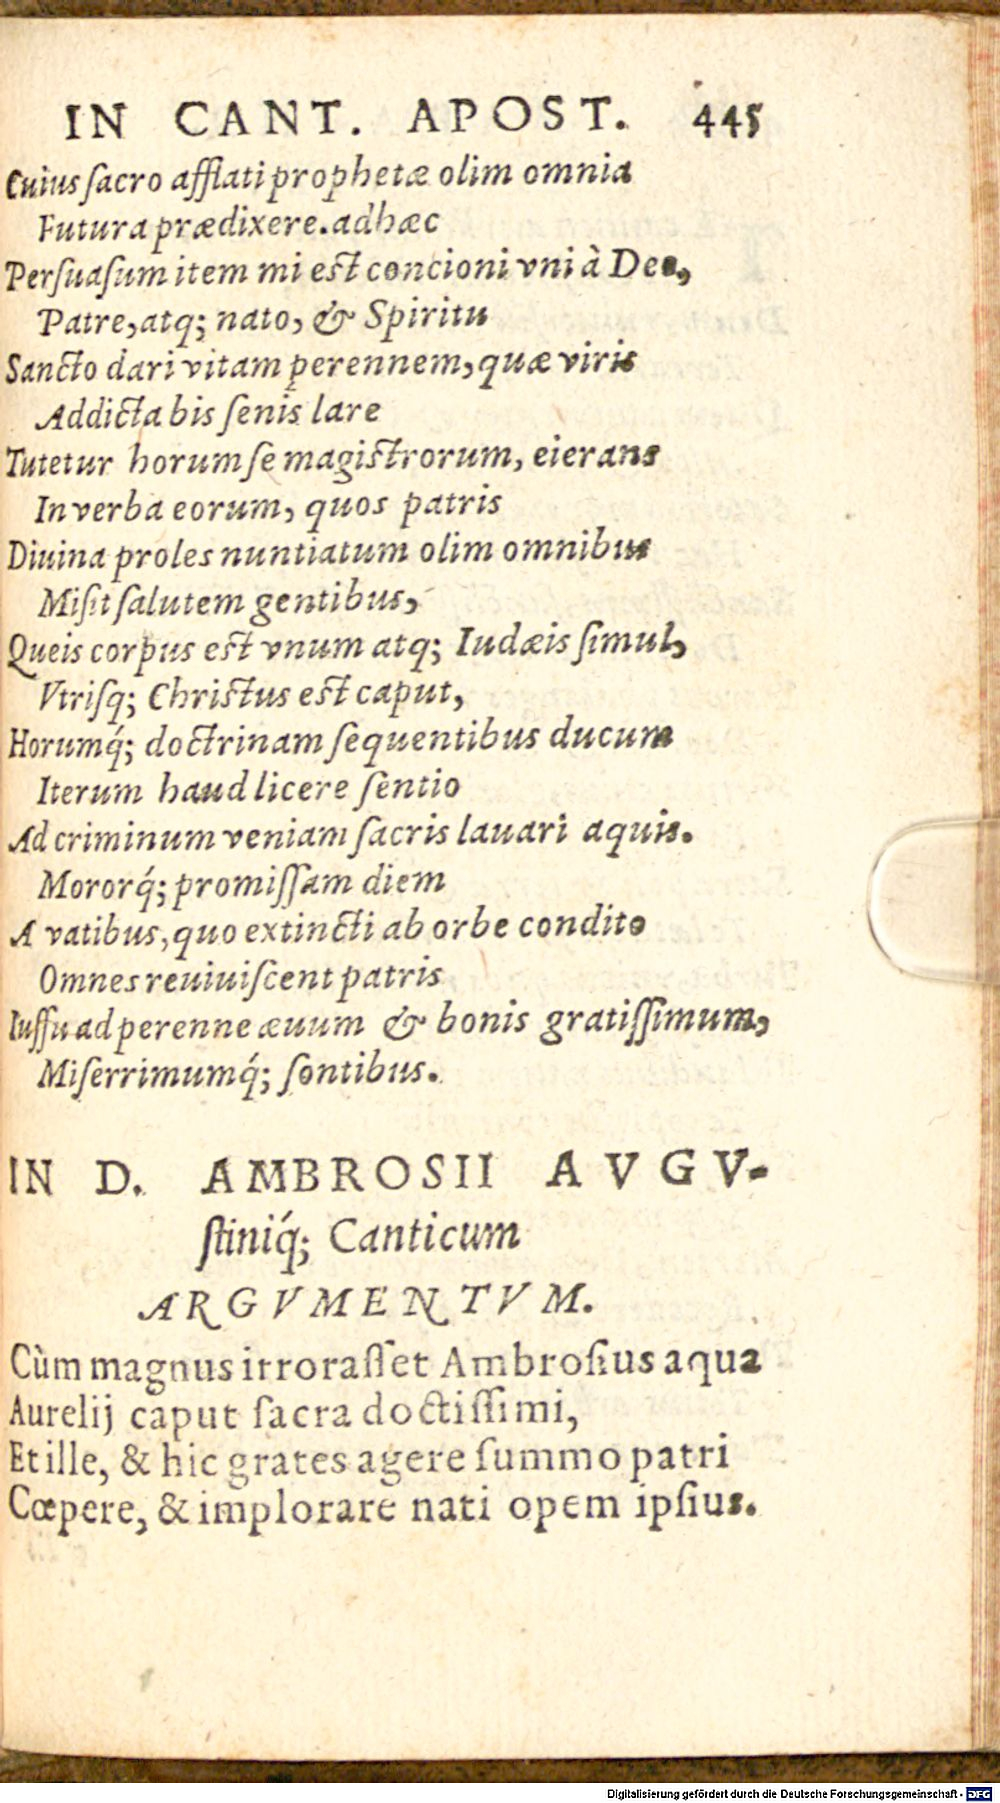 IN CANT. APOST. 445
Cuius ſacro afflati prophetæ olim omnia
Futura prædixere. adhæc
Perſuaſum item mi est concioni vni à Deo,
Patre, atq; nato, & Spiritu
Sancto dari vitam perennem, quæ viris
Addicta bis ſenis lare
Tutetur horum ſe magistrorum, eierans
In verba eorum, quos patris
Diuina proles nuntiatum olim omnibus
Miſit ſalutem gentibus,
Queis corpus est vnum atq; Iudæis ſimul,
Vtriſq; Christus est caput,
Horumq́; doctrinam ſequentibus ducum
Iterum haud licere ſentio
Ad criminum veniam ſacris lauari aquis.
Mororq́; promiſſam diem
A vatibus, quo extincti ab orbe condito
Omnes reuiuiſcent patris
Iuſſu ad perenne æuum & bonis gratiſſimum,
Miſerrimumq́; ſontibus.
IN D. AMBROSII AVGV-
ſtiniq́; Canticum
ARGVMENTVM.
Cùm magnus irroraſſet Ambroſius aqua
Aurelij caput ſacra doctiſſimi,
Et ille, & hic grates agere ſummo patri
Cœpere, & implorare nati opem ipſius.
Digitalisierung gefördert durch die Deutsche Forschungsgemeinschaft - DFG